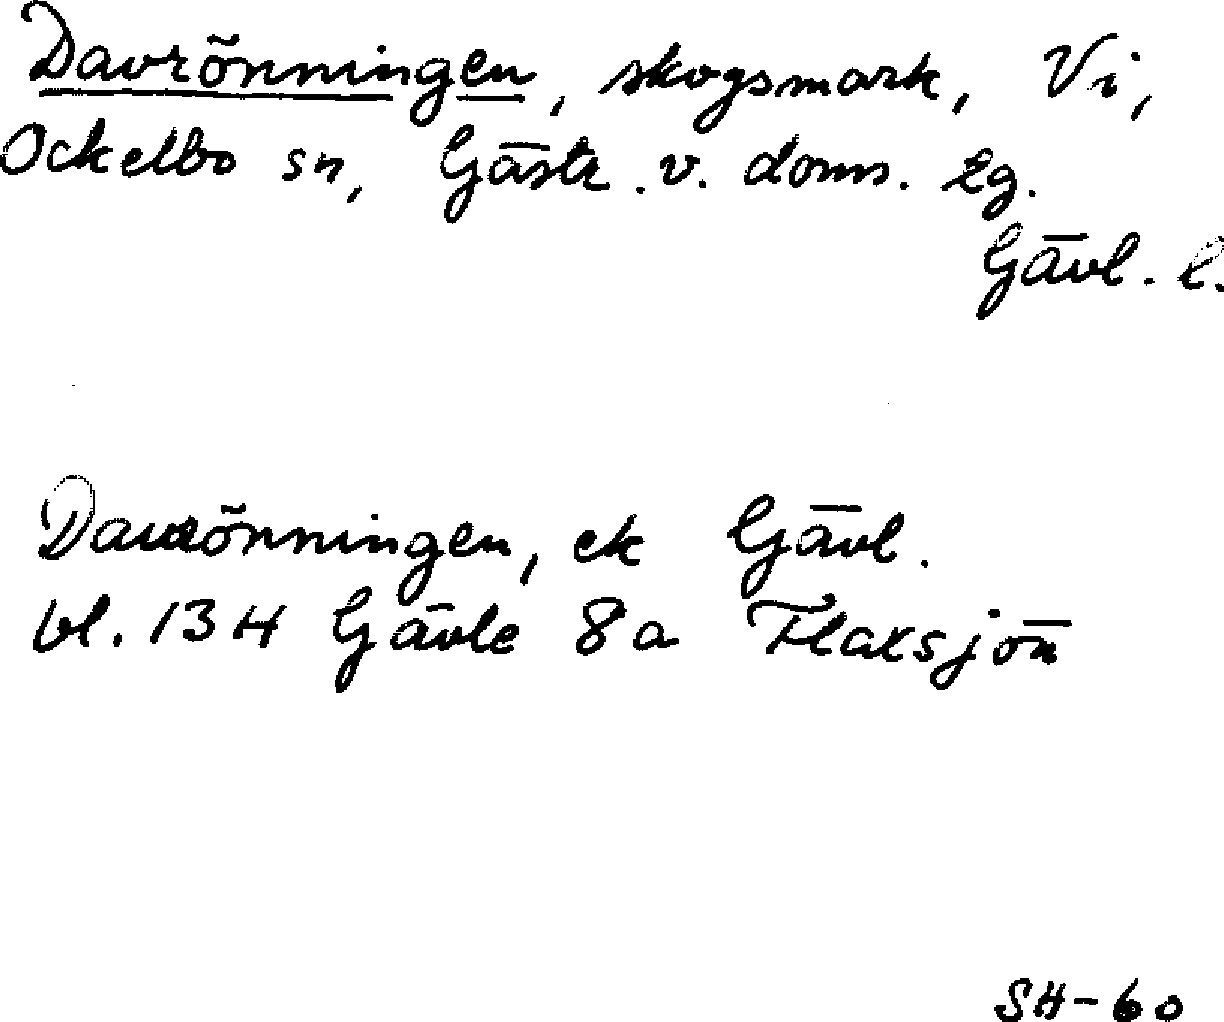 Davrönningen, skogsmark, Vi,
Ockelbo sn, Gästr. v. doms. Lg.
Gävl. l.
Davrönningen, ek Gävl.
bl. 13H Gävle 8a Flaxsjön
SH-60